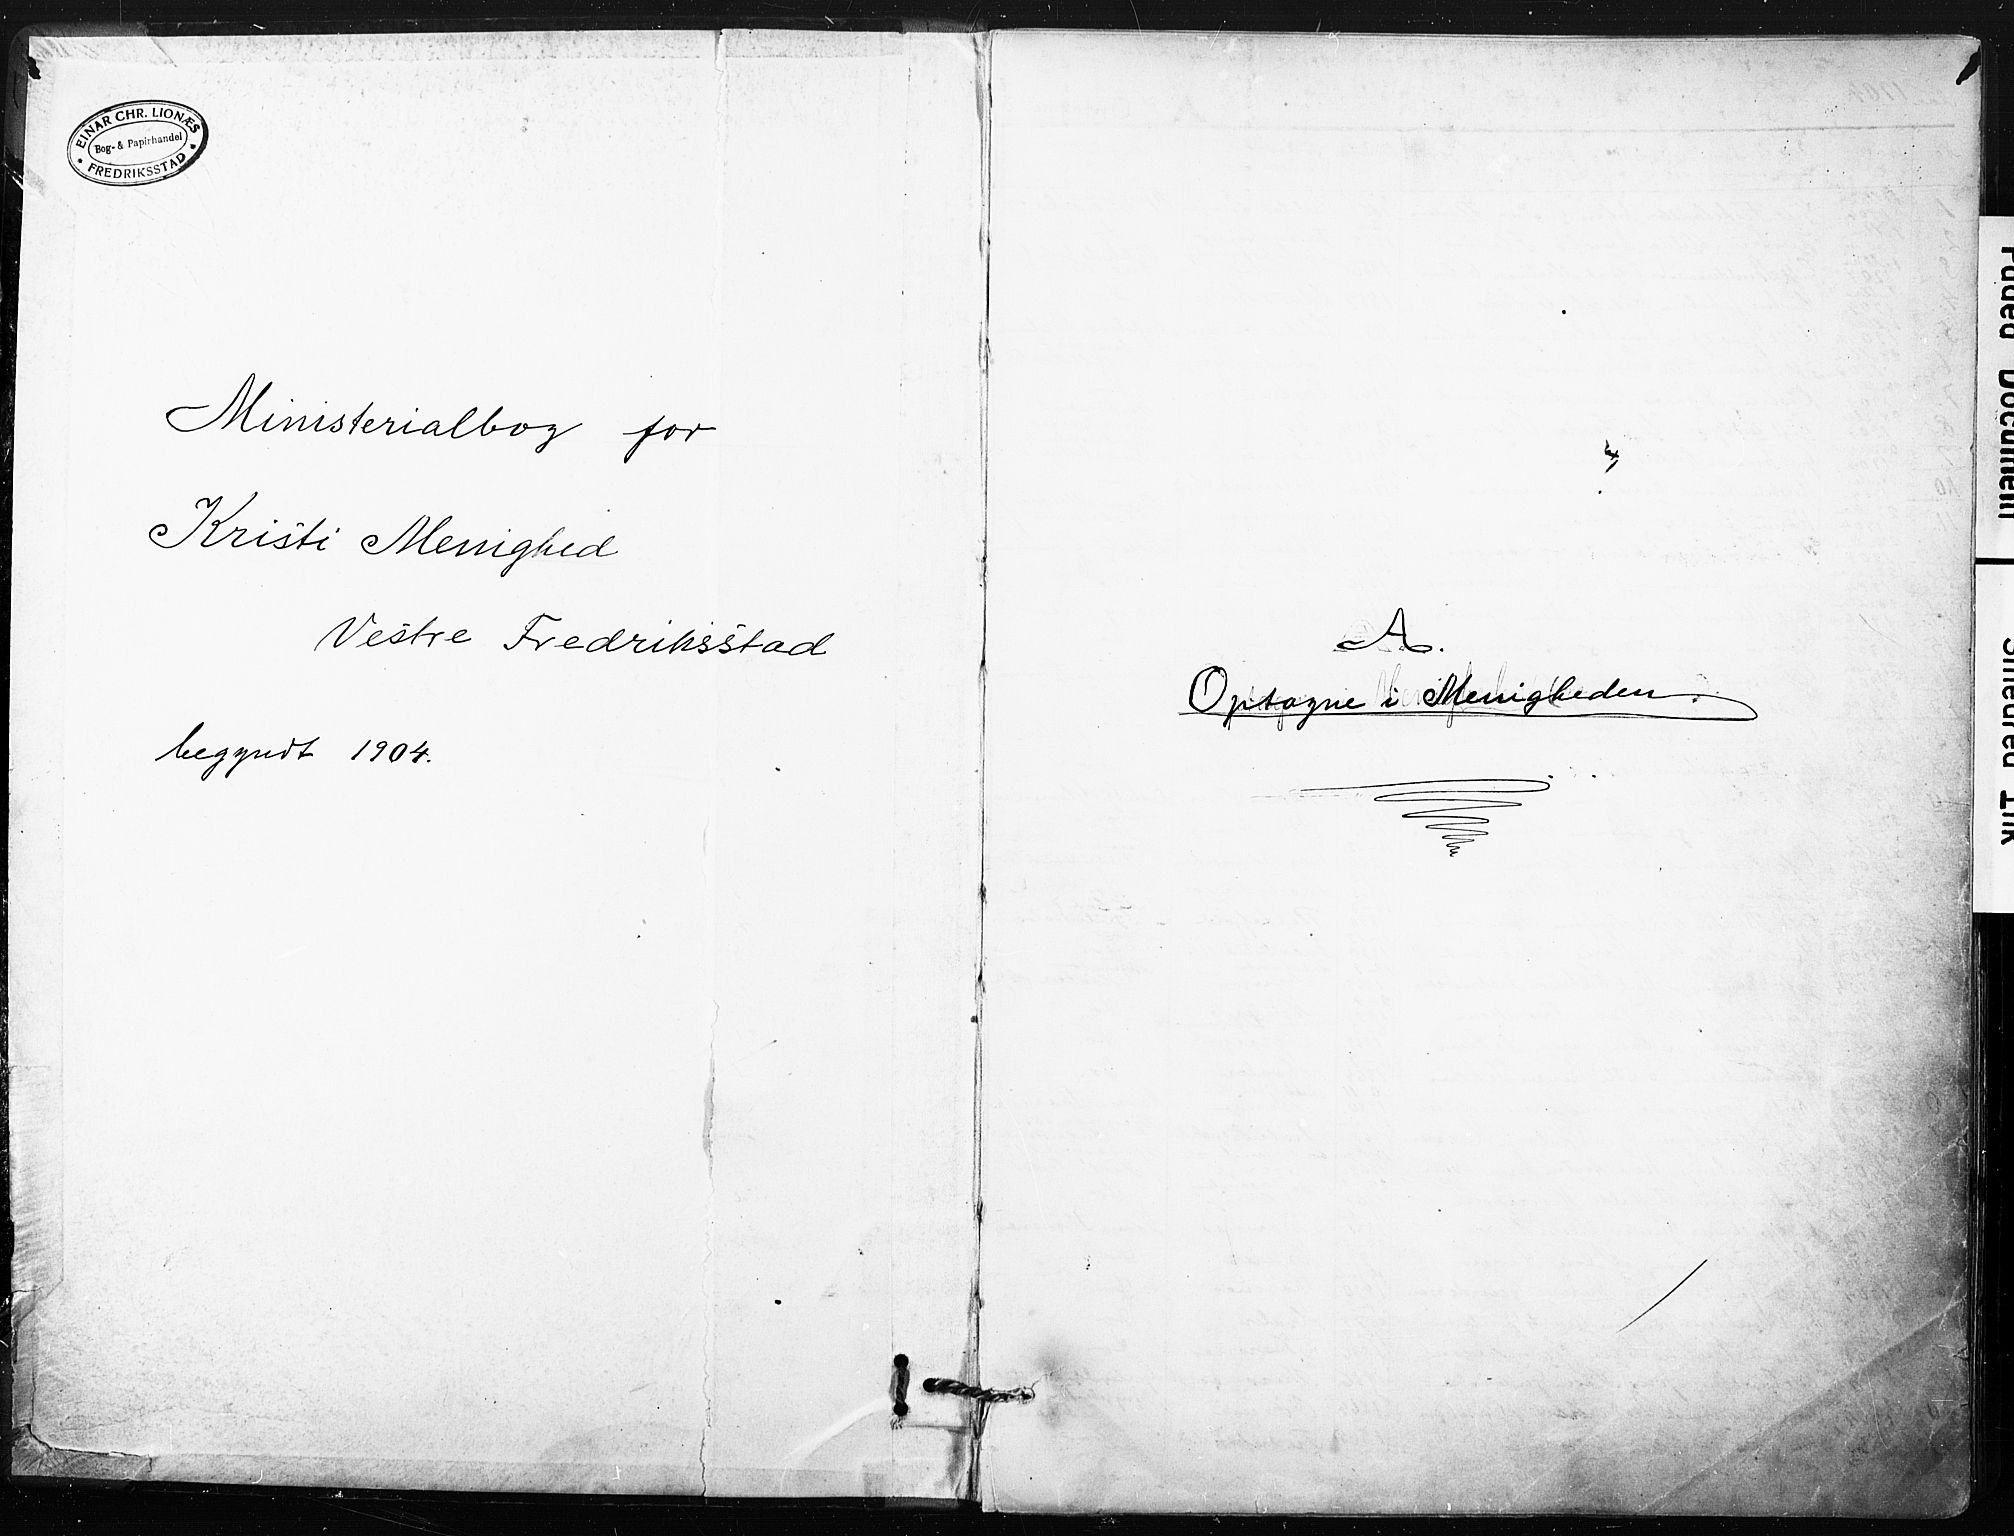 EINAR CHR. LIONÆS
Bog- & Papirhandel
FREDRIKSSTAD
Ministerialbog for
Kristi Menighed
Vestre Fredriksstad
begyndt 1904.
A.
Optagne i Menigheden.
Faded Document
Smeared Ink